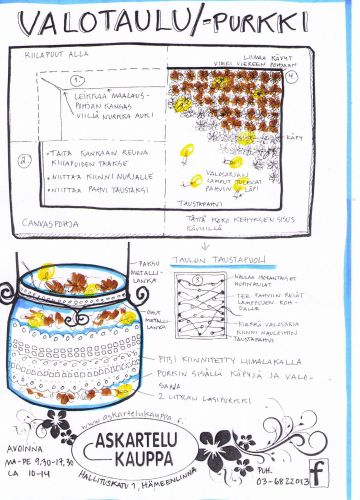 VALOTAULU/-PURKKI
KIILAPUUT ALLA
1.
LEIKKAA MAALAUS-
POHJAN KANGAS
VIILLÄ NURKKA AUKI
LIIMAA KÄVYT
VIERI VIEREEN POHJAAN
4
KÄPY
2
• TAITA KANKAAN REUNA
KIILAPUIDEN TAAKSE
• NIITTAA KIINNI NURJALLE
• NIITTAA PAHVI TAUSTAKSI
VALOSARJAN
LAMPUT TULEVAT
PAHVIN LÄPI
TAUSTAPAHVI
CANVASPOHJA
TÄYTÄ KOKO KEHYKSEN SISUS
KÄVYILLÄ
TAULUN TAUSTAPUOLI
3
PAKSU
METALLI-
LANKA
OHUT
METALLI-
LANKA
TEE PAHVIIN REIÄT
LAMPPUJEN KOH-
DALLE
KIERRÄ VALOSARJA
KIINNI NAULOIHIN
TAUSTAPAHVI
PITSI KIINNITETTY LIIMALAKALLA
PURKIN SISÄLLÄ KÄPYJÄ JA VALO-
SARJA
2 LITRAN LASIPURKKI
www.askartelukauppa.fi
ASKARTELU
KAUPPA
HALLITUSKATU 7, HÄMEENLINNA
AVOINNA
MA-PE 9.30-17.30
LA 10-14
PUH.
03-6822013
f